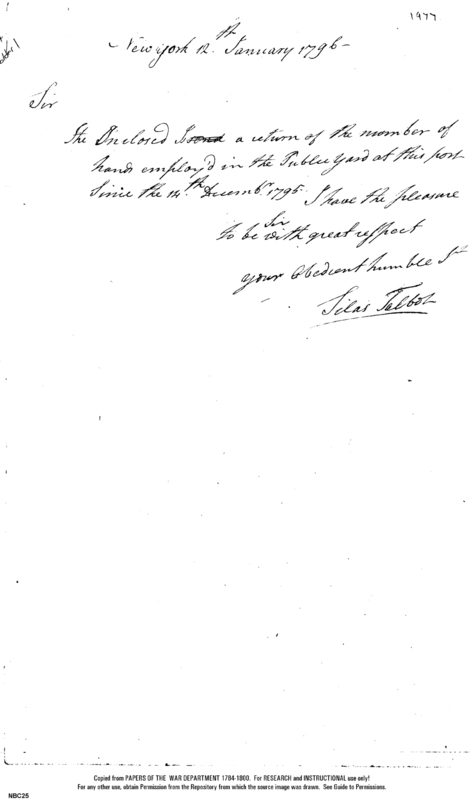 1977
New york 12th January 1796 -
Sir
The Inclosed is a return of the number of
hands employ'd in the Publick yard at this port
Since the 14th Decemb.r 1795. I have the pleasure
Sir
to be with great respect
your Obedient humble St
Silas Talbot
Copied from PAPERS OF THE WAR DEPARTMENT 1784-1800. For RESEARCH and INSTRUCTIONAL use only!
For any other use, obtain Permission from the Repository from which the source image was drawn. See Guide to Permissions.
NBC25